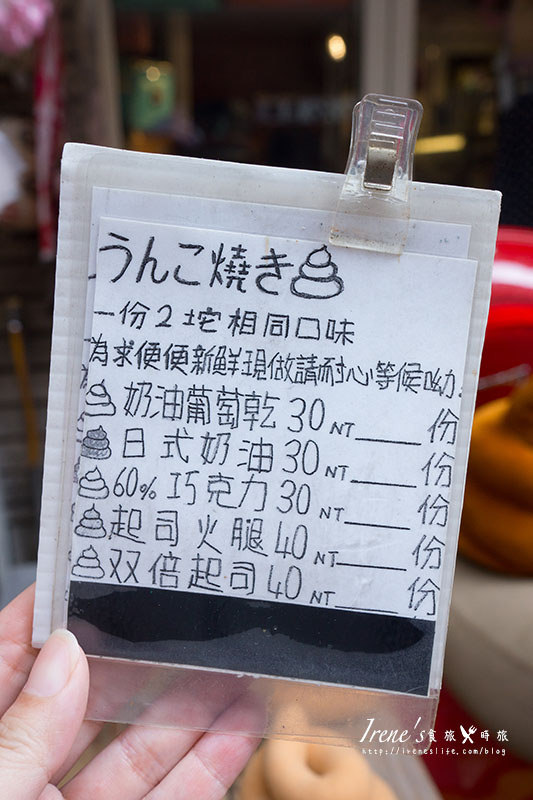 うんこ燒き
一份2坨相同口味
為求便便新鮮現做請耐心等候呦.
奶油葡萄乾 30 NT____份
日式奶油 30 NT____份
60% 巧克力 30 NT____份
起司火腿 40 NT____份
双倍起司 40 NT____份
Irene's 食旅 時旅
http://ireneslife.com/blog